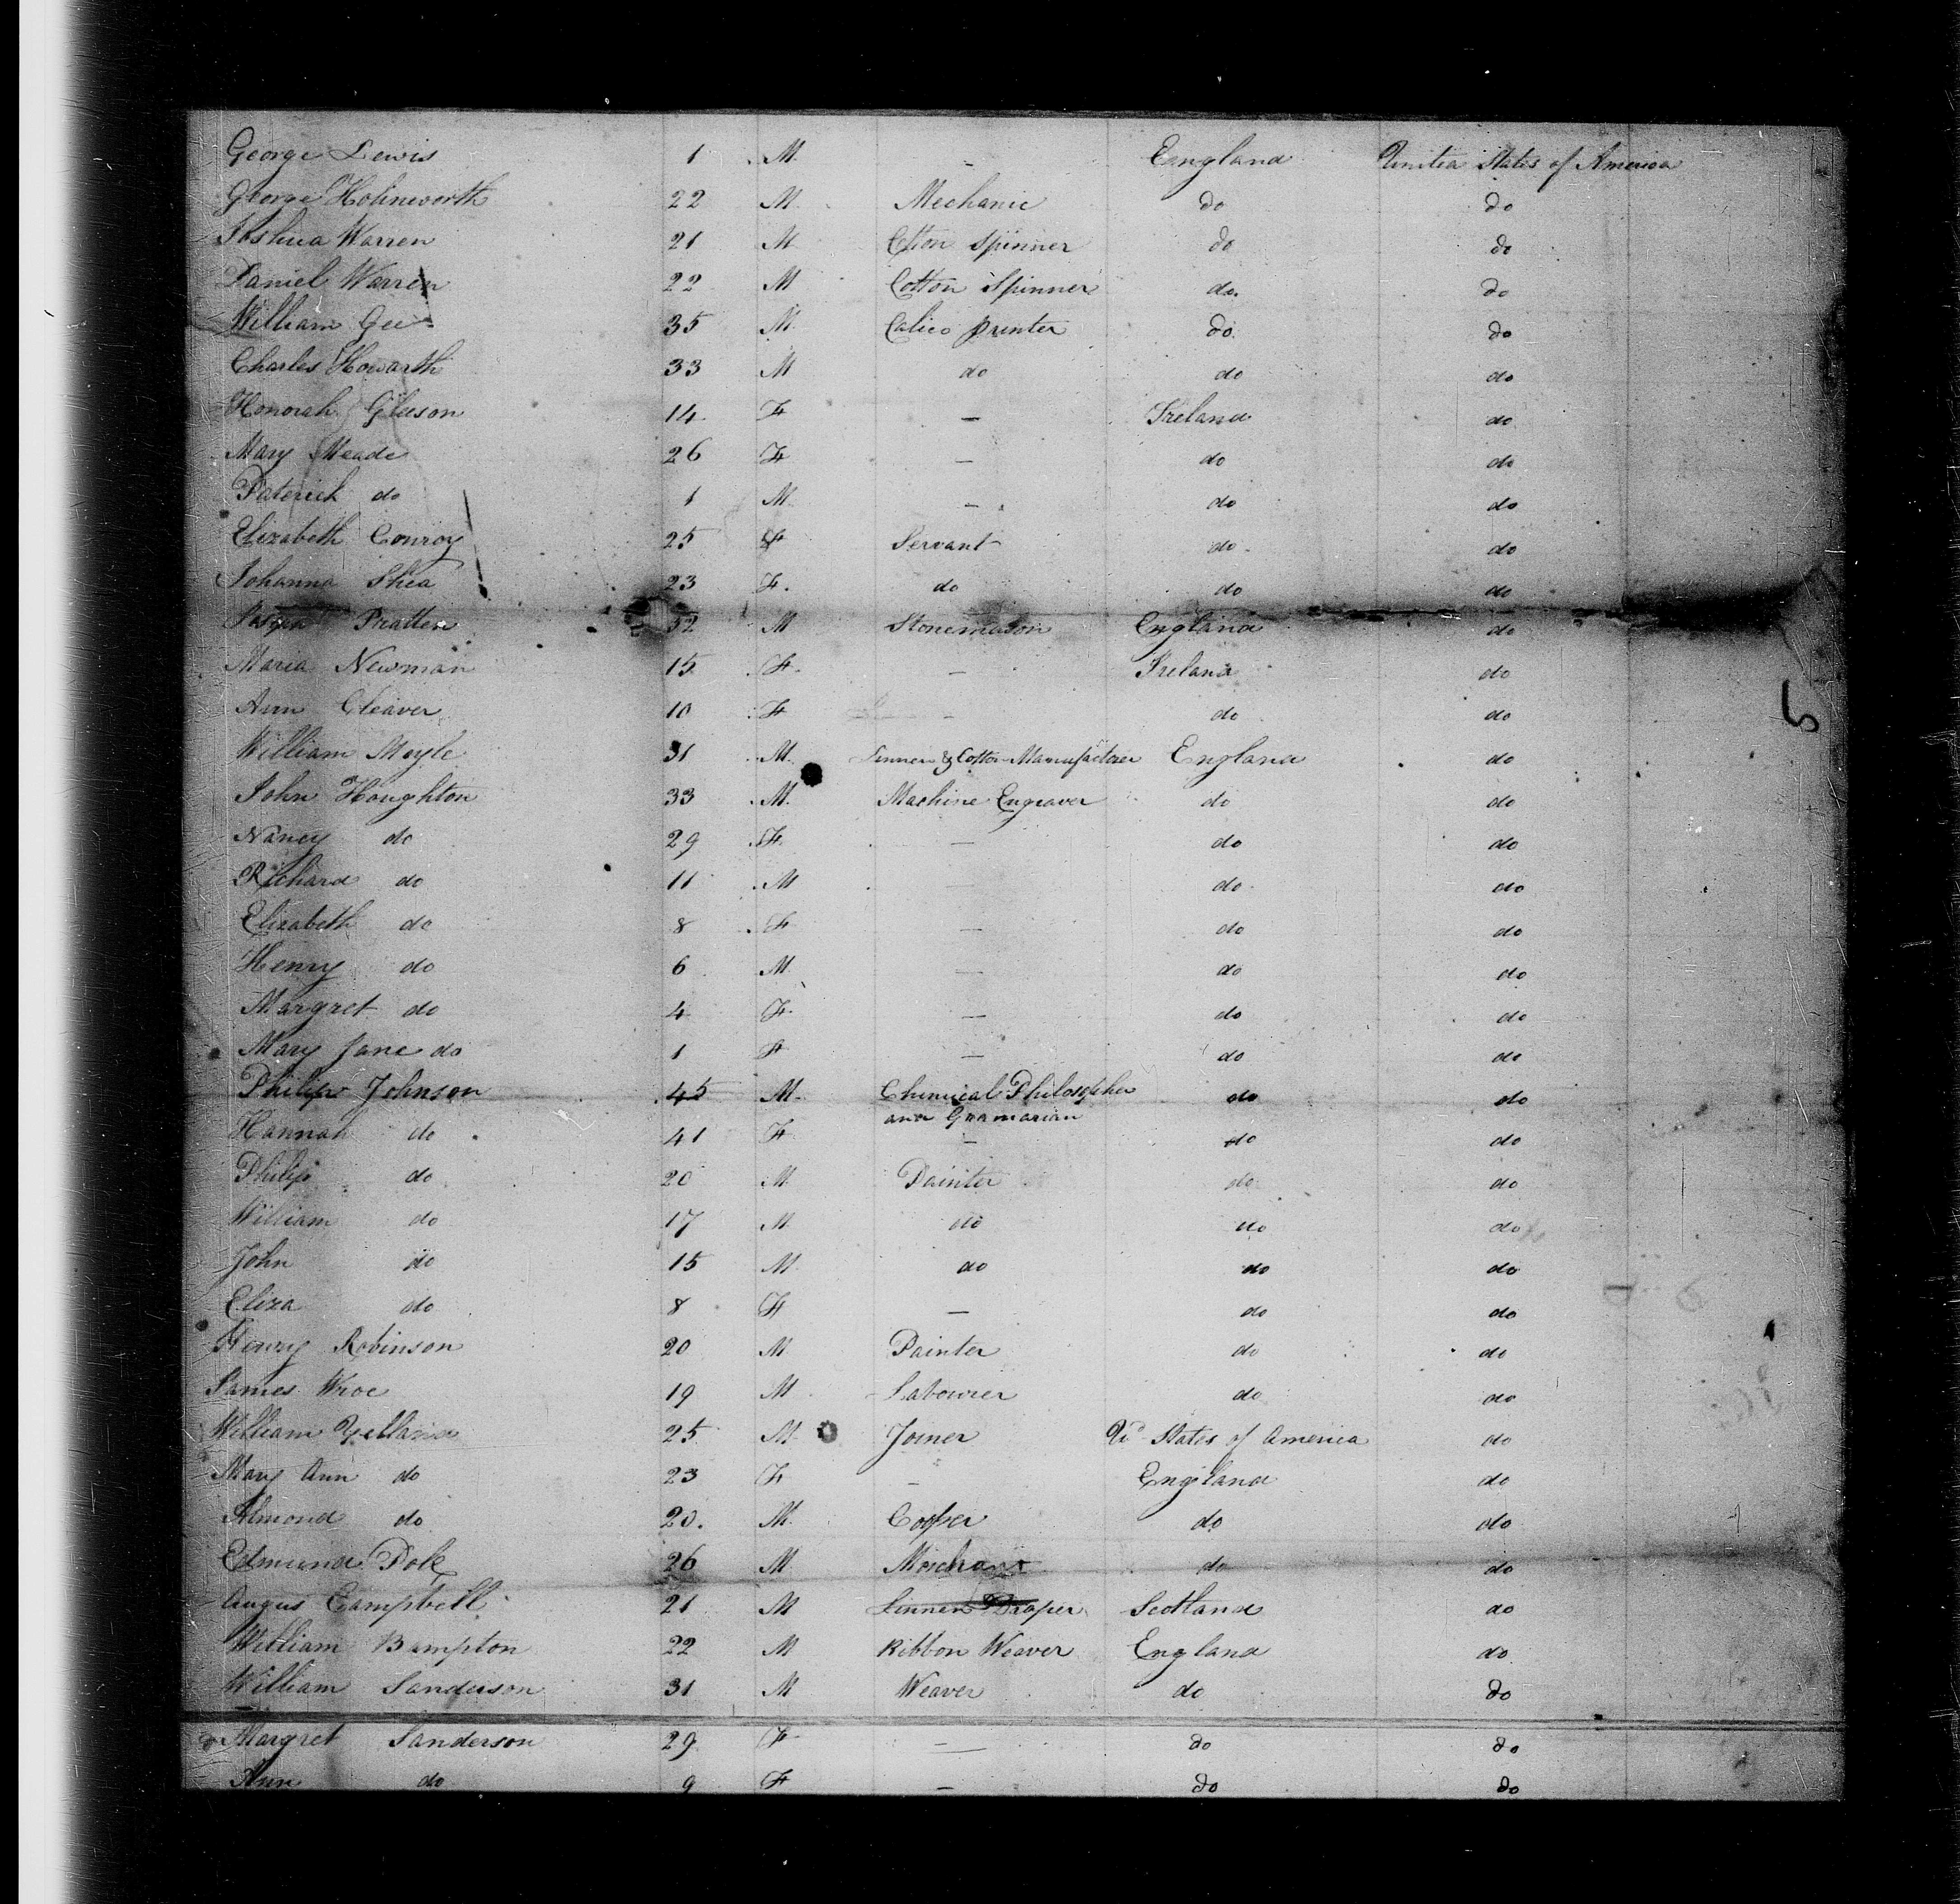 George Lewis 1 M. - England United States of America
George Holinsworth 22 M. Mechanic do do
Joshua Warren 21 M Cotton Spinner do do
Daniel Warren 22 M Cotton Spinner do. do
William Gee 35 M. Calico printer do. do
Charles Howarth 33 M do do do
Honorah Gleeson 14 F - Ireland do
Mary Meade 26 F - do do
Paterick do 1 M. - do do
Elizabeth Conroy 25 F Servant do. do
Johanna Shea 23 F. do do do
Joseph Pratten 52 M Stonemason England do
Maria Newman 15 F. - Ireland do
Ann Cleaver 10 F - do do
William Moyle 31 M. Linnen & Cotton Manufacturer England do
John Houghton 33 M. Machine Engraver do do
Nancy do 29 F. - do do
Richard do 11 M - do do
Elizabeth do 8 F - do do
Henry do 6 M. - do do
Margret do 4 F. - do do
Mary Jane do 1 F - do do
Philip Johnson 45 M. Chemical Philosopher do do
and Gramarian
Hannah do 41 F - do do
Philip do 20 M. Painter do do
William do 17 M do do do
John do 15 M. do do do
Eliza do 8 F - do do
Henry Robinson 20 M Painter do do
James Wroe 19 M Labourer do do
William Yelland 25 M. Joiner Ud States of America do
Mary Ann do 23 F - England do
Almond do 20. M. Cooper do do
Edmund Polk 26 M Merchant do do
Angus Campbell 21 M Linnen Draper Scotland do
William Bumpton 22 M Ribbon Weaver England do
William Sanderson 31 M Weaver do do
Margret Sanderson 29 F - do do
Ann do 9 F - do do
5